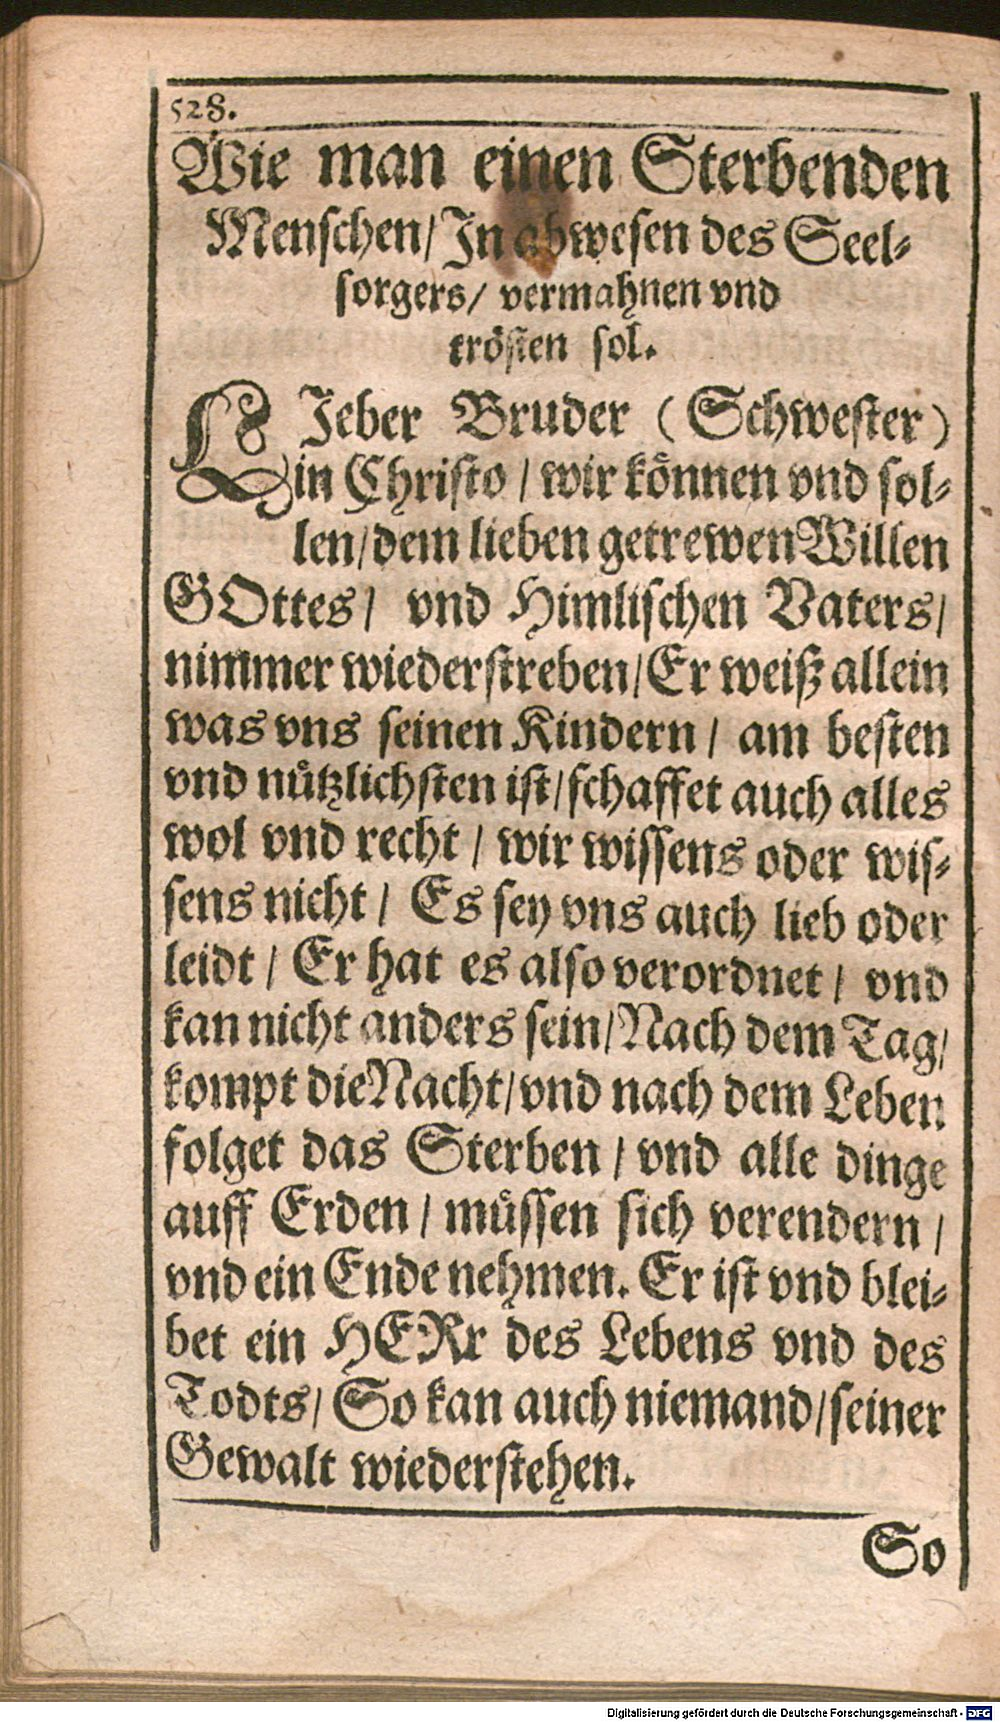 528.
Wie man einen Sterbenden
Menschen/ In abwesen des Seel-
sorgers/ vermahnen vnd
trösten sol.
LJeber Bruder (Schwester)
in Christo / wir können vnd sol-
len/ dem lieben getrewen Willen
GOttes/ vnd Himlischen Vaters/
nimmer wiederstreben/ Er weiß allein
was vns seinen Kindern / am besten
vnd nützlichsten ist/ schaffet auch alles
wol vnd recht / wir wissens oder wis-
sens nicht / Es sey vns auch lieb oder
leidt / Er hat es also verordnet / vnd
kan nicht anders sein/ Nach dem Tag/
kompt die Nacht/ vnd nach dem Leben
folget das Sterben / vnd alle dinge
auff Erden / müssen sich verendern /
vnd ein Ende nehmen. Er ist vnd blei-
bet ein HERr des Lebens vnd des
Todts/ So kan auch niemand/ seiner
Gewalt wiederstehen.
So
Digitalisierung gefördert durch die Deutsche Forschungsgemeinschaft - DFG